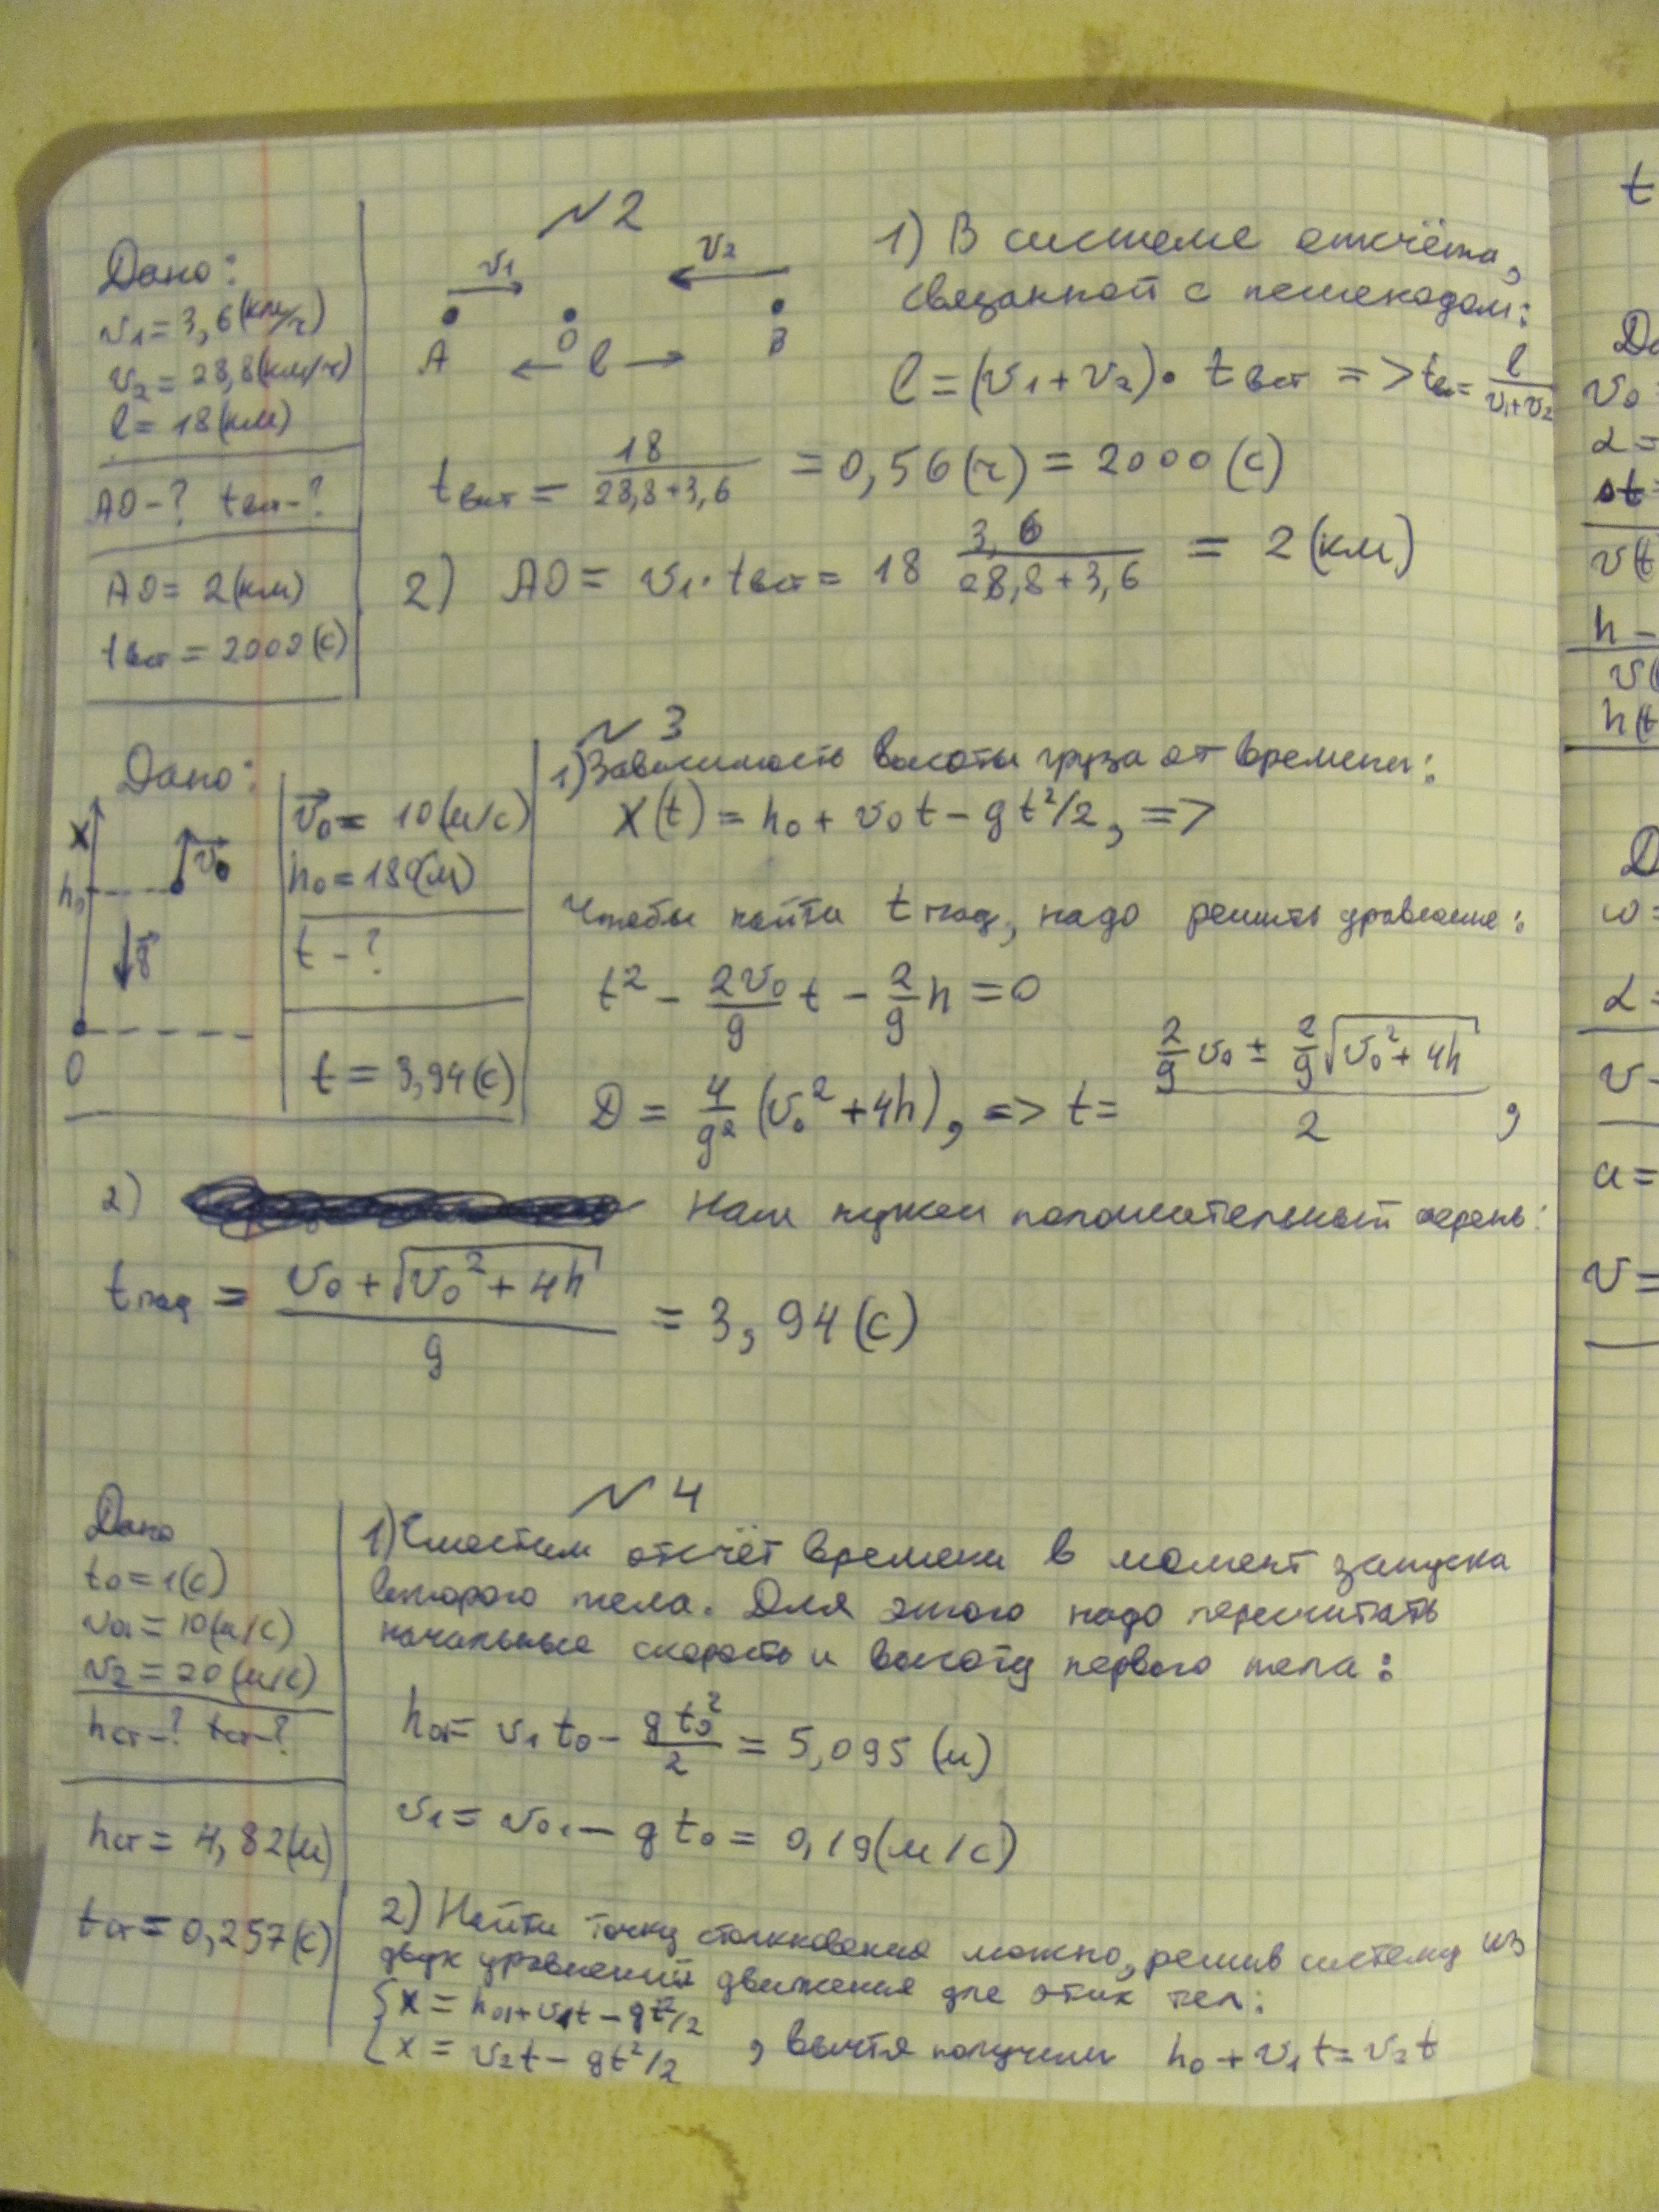 №2
Дано:
v1 = 3,6 (км/ч)
v2 = 28,8 (км/ч)
l = 18 (км)
AO - ? tвст - ?
AO = 2 (км)
tвст = 2000 (с)
v1 v2
A O B
← l →
1) В системе отсчёта,
связанной с пешеходом:
l = (v1 + v2) · tвст => tвст = l / (v1 + v2)
tвст = 18 / (28,8 + 3,6) = 0,56 (ч) = 2000 (с)
2) AO = v1 · tвст = 18 3,6 / (28,8 + 3,6) = 2 (км)
№3
Дано:
x
h0 v0
g
0
v0 = 10 (м/с)
h0 = 18 (м)
t - ?
t = 3,94 (с)
1) Зависимость высоты груза от времени:
x(t) = h0 + v0t - gt²/2, =>
Чтобы найти tпад, надо решить уравнение:
t² - 2v0/g t - 2/g h = 0
D = 4/g² (v0² + 4h), => t = (2/g v0 ± 2/g √(v0² + 4h)) / 2 ,
2) Нам нужен положительный корень:
tпад = (v0 + √(v0² + 4h)) / g = 3,94 (с)
№4
Дано
t0 = 1 (с)
v01 = 10 (м/с)
v2 = 20 (м/с)
hст - ? tст - ?
hст = 4,82 (м)
tст = 0,257 (с)
1) Сместим отсчёт времени в момент запуска
второго тела. Для этого надо пересчитать
начальные скорость и высоту первого тела:
h01 = v1t0 - gt0²/2 = 5,095 (м)
v1 = v01 - gt0 = 0,19 (м/с)
2) Найти точку столкновения можно, решив систему из
двух уравнений движения для этих тел:
{ x = h01 + v1t - gt²/2
{ x = v2t - gt²/2 , вычтя получим h0 + v1t = v2t
t
v0
α =
v(t
h -
v(
h(t
ω =
α =
v -
u =
v =